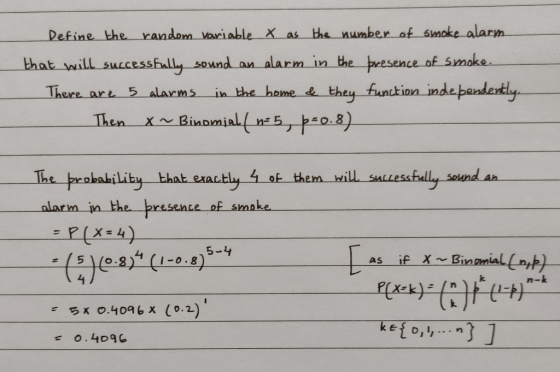 Define the random variable X as the number of smoke alarm
that will successfully sound an alarm in the presence of smoke.
There are 5 alarms in the home & they function independently.
Then X ~ Binomial (n=5, p=0.8)
The probability that exactly 4 of them will successfully sound an
alarm in the presence of smoke
= P(X=4)
= (5 4) (0.8)^4 (1-0.8)^{5-4}
[ as if X ~ Binomial (n,p)
P(X=k) = (n k) p^k (1-p)^{n-k}
= 5 × 0.4096 × (0.2)^1
k ∈ {0,1,...n} ]
= 0.4096